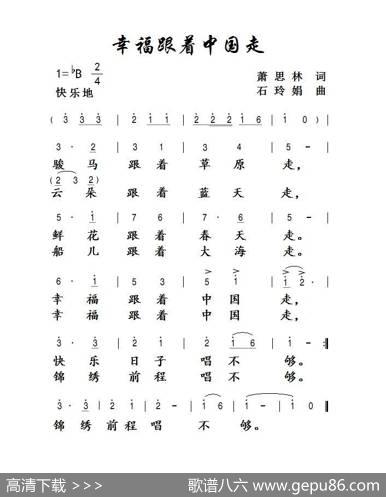 幸福跟着中国走
1=♭B 2/4
萧思林 词
快乐地
石玲娟 曲
( 3 3 3 | 2 1 1 | 2 2 2 1 6 | 1 0 )
3· 2 | 3 1 | 3 4 | 5 - |
骏 马 跟 着 草 原 走,
(2 3 2)
云 朵 跟 着 蓝 天 走,
5· 1 | 7 6 | 7· 6 | 5 - |
鲜 花 跟 着 春 天 走。
船 儿 跟 着 大 海 走。
6· 1 | 5 3 | 5 1 | 1 2· |
幸 福 跟 着 中 国 走,
幸 福 跟 着 中 国 走,
3· 3 | 2 1 | 2· 1 6 | 1 - :‖
快 乐 日 子 唱 不 够。
锦 绣 前 程 唱 不 够。
3· 3 | 2 1 | 2 - | 1 6 | 1 - | 1 0 ‖
锦 绣 前 程 唱 不 够。
高清下载 >>>
歌谱八六 www.gepu86.com